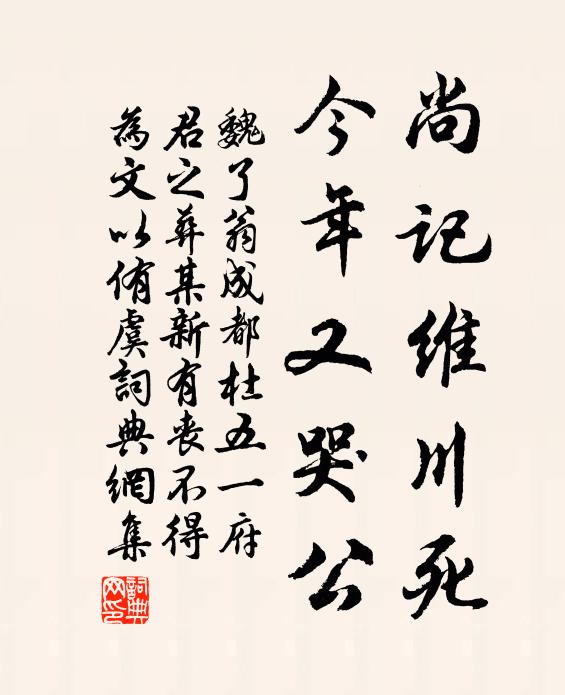 尚记维川死
今年又哭公
魏了翁成都杜五一府
君之葬某新有丧不得
為文以侑虞詞典網集
詞典网印